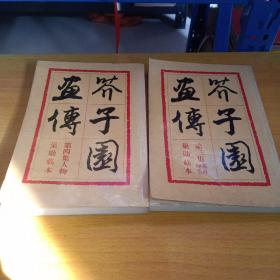 芥子園
畫傳
第四集人物
巢勛臨本
芥子園
畫傳
第三集
巢勛臨本